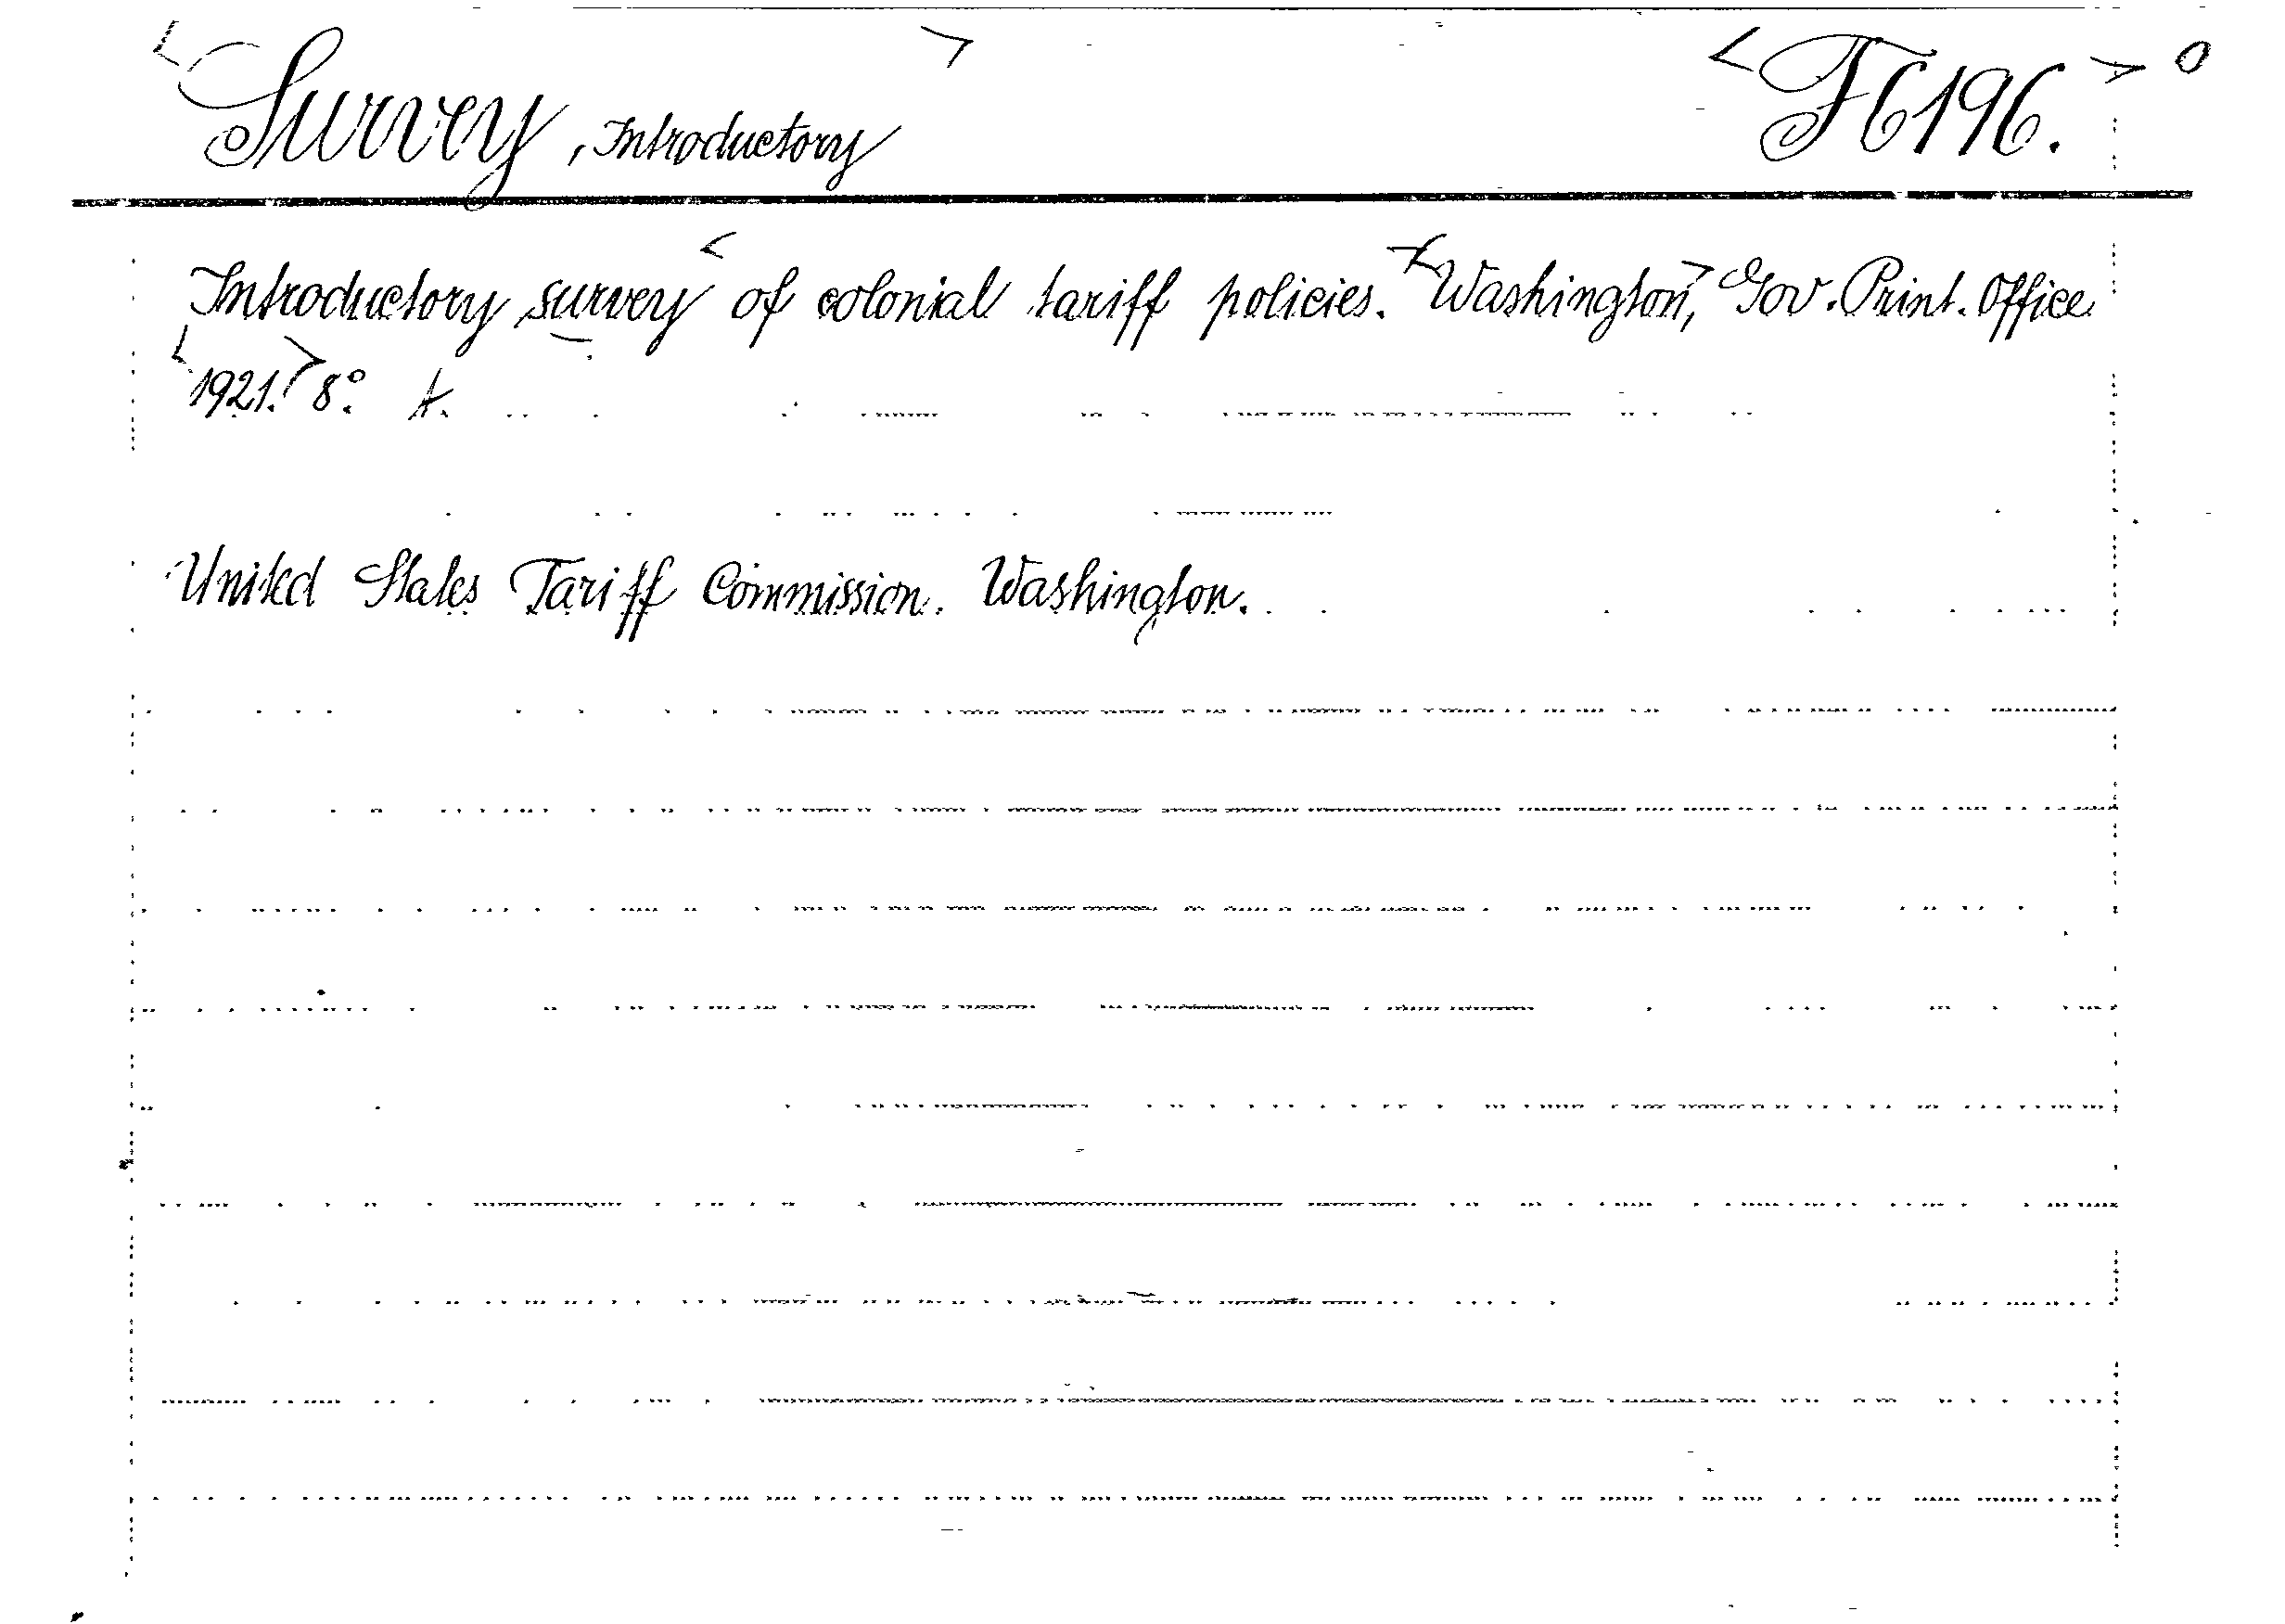 <Survey, Introductory> <F6196.> 0
Introductory survey <of colonial tariff policies.> <Washington>, Gov. Print. Office
<1921.> 8° A.
United States Tariff Commission. Washington.